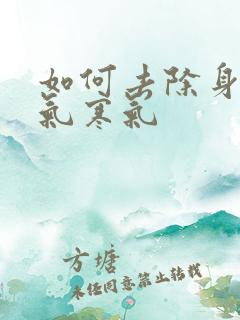 如何去除身
氣寒氣
方塘
未经同意禁止转载